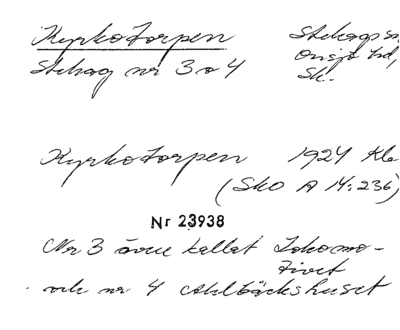 Kyrkotorpen Stehags sn,
Stehag nr 3 o 4 Onsjö hd,
Sk.
Kyrkotorpen 1924 Kla
(Sko A 14:236)
Nr 23938
Nr 3 även kallat Lokomo-
tivet
och nr 4 Ahlbäckshuset